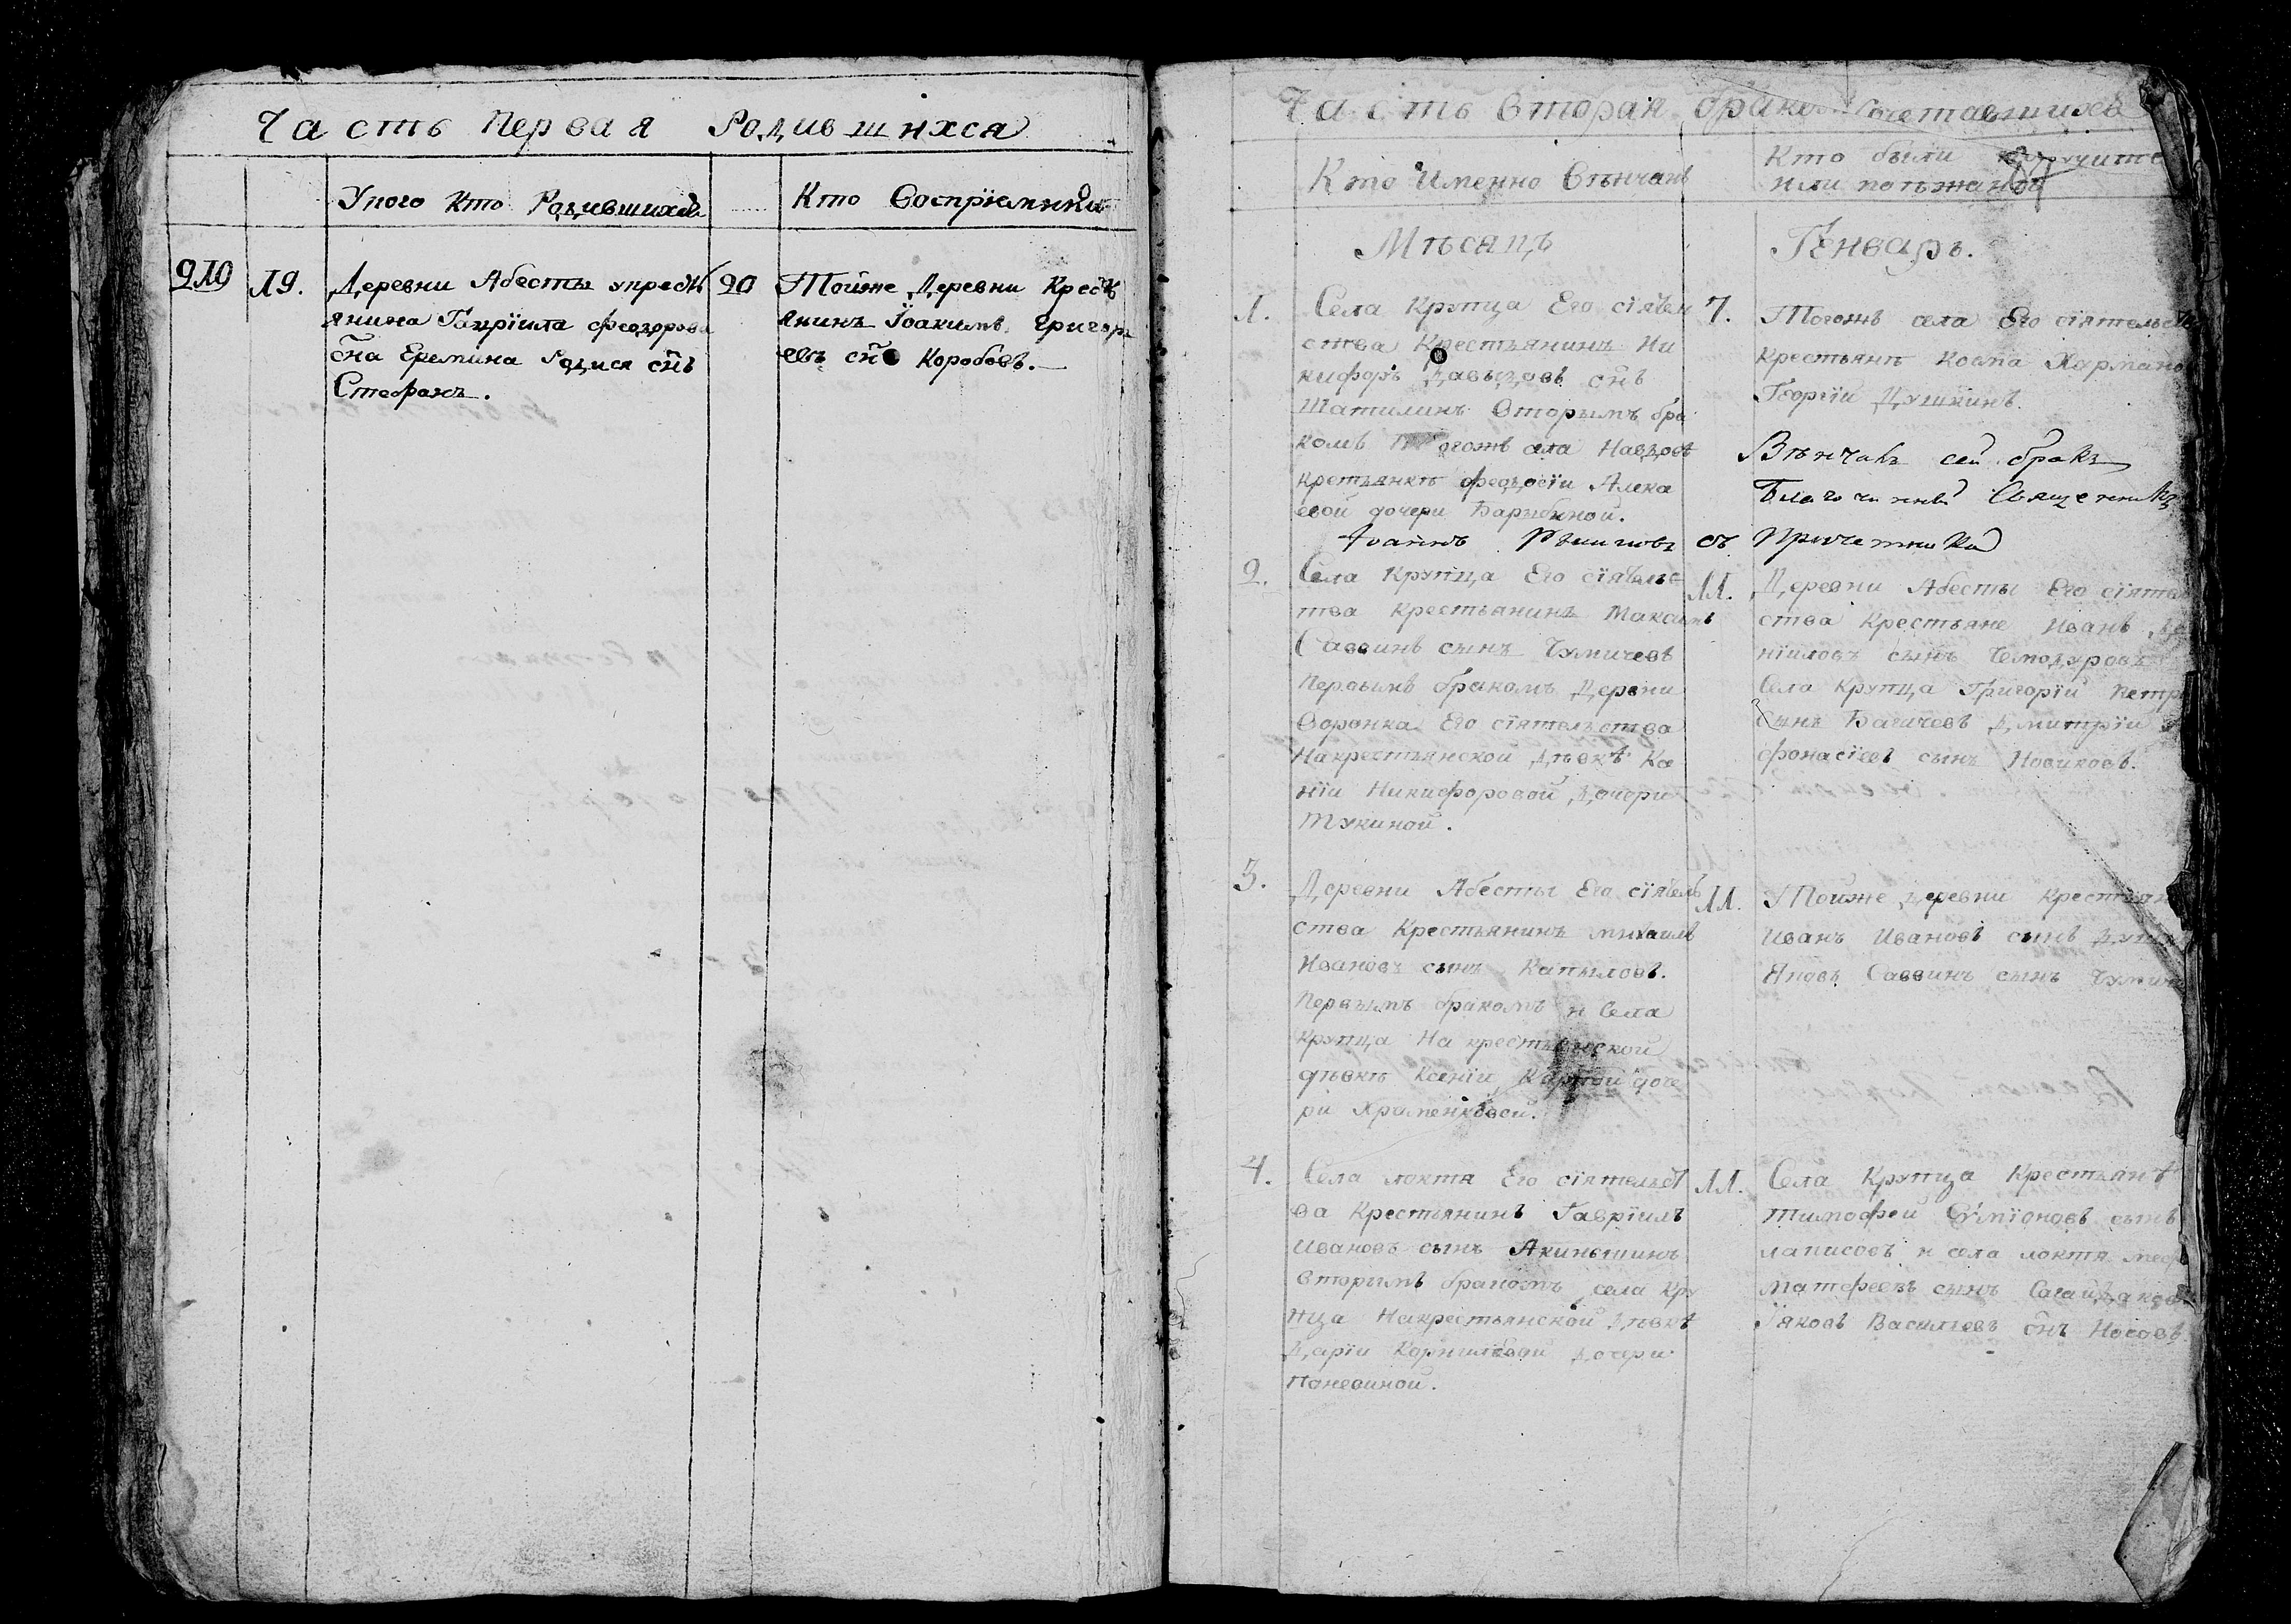 Часть Первая Родившихся
Укого Кто Родившихся
Кто Воспріемники
210
19.
Деревни Абесты укресть
янина Гавріила Феодорова
сна Еремина Родися снъ
Стефанъ.
20
Тойже Деревни Кресть
янинъ Іоакимъ Григорь
евъ снъ Коробовъ.
Часть Вторая бракосочетавшихся
Кто Именно Венчанъ
Кто были поручите
или поезжаной
Мѣсяцъ
Генварь.
1.
Села Крупца Его сіятел
ства Крестьянинъ Ни
кифоръ Давыдовъ снъ
Шатилинъ Вторымъ бра
комъ Тогожъ села Навдовѣ
кретьянкѣ Феодосіи Алека
евой дочери Барыбиной.
7.
Тогожъ села Его сіятельств
крестьянѣ Козма
Георгій Душкинъ.
Вѣнчалъ сей бракъ
Благочинный Священникъ
Іоаннъ
съ Причетники
2.
Села Крупца Его сіятельс
тва Крестьянинъ Максимъ
Саввинъ сынъ Чумичевъ
Первымъ бракомъ Деревни
Воронка Его сіятельства
Накрестьянской Дѣвкѣ Ксе
ніи Никифоровой Дочери
Тукиной.
11.
Деревни Абесты Его сіятел
ства Крестьяне Иванъ Да
ніиловъ сынъ Чемодуровъ
Села Крупца Григорій Петро
сынъ Багичевъ Дмитрій А
фонасіевъ сынъ Новиковъ.
3.
Деревни Абесты Его сіятель
ства Крестьянинъ Михаилъ
Ивановъ сынъ Капыловъ.
Первымъ бракомъ и Села
Крупца На крестьянской
дѣвкѣ Ксеніи Карповой доче
ри Храменковой.
11.
Тойже деревни Крестьян
Иванъ Ивановъ сынъ
Яковъ Саввинъ сынъ Чумич
4.
Села локтя Его сіятельст
ва Крестьянинъ Гавріилъ
Ивановъ сынъ Акиньшинъ
Вторымъ бракомъ села Кру
пца Накрестьянской Дѣвкѣ
Даріи Корниліевой Дочери
Паневиной.
11.
Села Крупца Крестьянѣ
Тимофей Сумїоновъ сынъ
лаписовъ и села локтя
Матфеевъ сынъ Сагайдаковъ
Іяковъ Васильевъ снъ Носовъ.